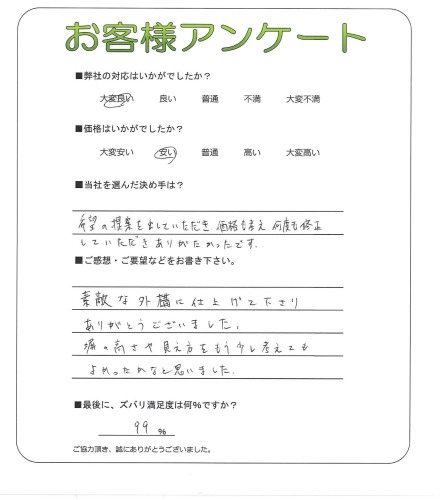 お客様アンケート
■弊社の対応はいかがでしたか？
大変良い 良い 普通 不満 大変不満
■価格はいかがでしたか？
大変安い 安い 普通 高い 大変高い
■当社を選んだ決め手は？
希望の提案を出していただき、価格も考え 何度も修正
していただきありがたかったです。
■ご感想・ご要望などをお書き下さい。
素敵な外構に仕上げて下さり
ありがとうございました。
塀の高さや見え方をもう少し考えても
よかったかなと思いました。
■最後に、ズバリ満足度は何％ですか？
99 %
ご協力頂き、誠にありがとうございました。